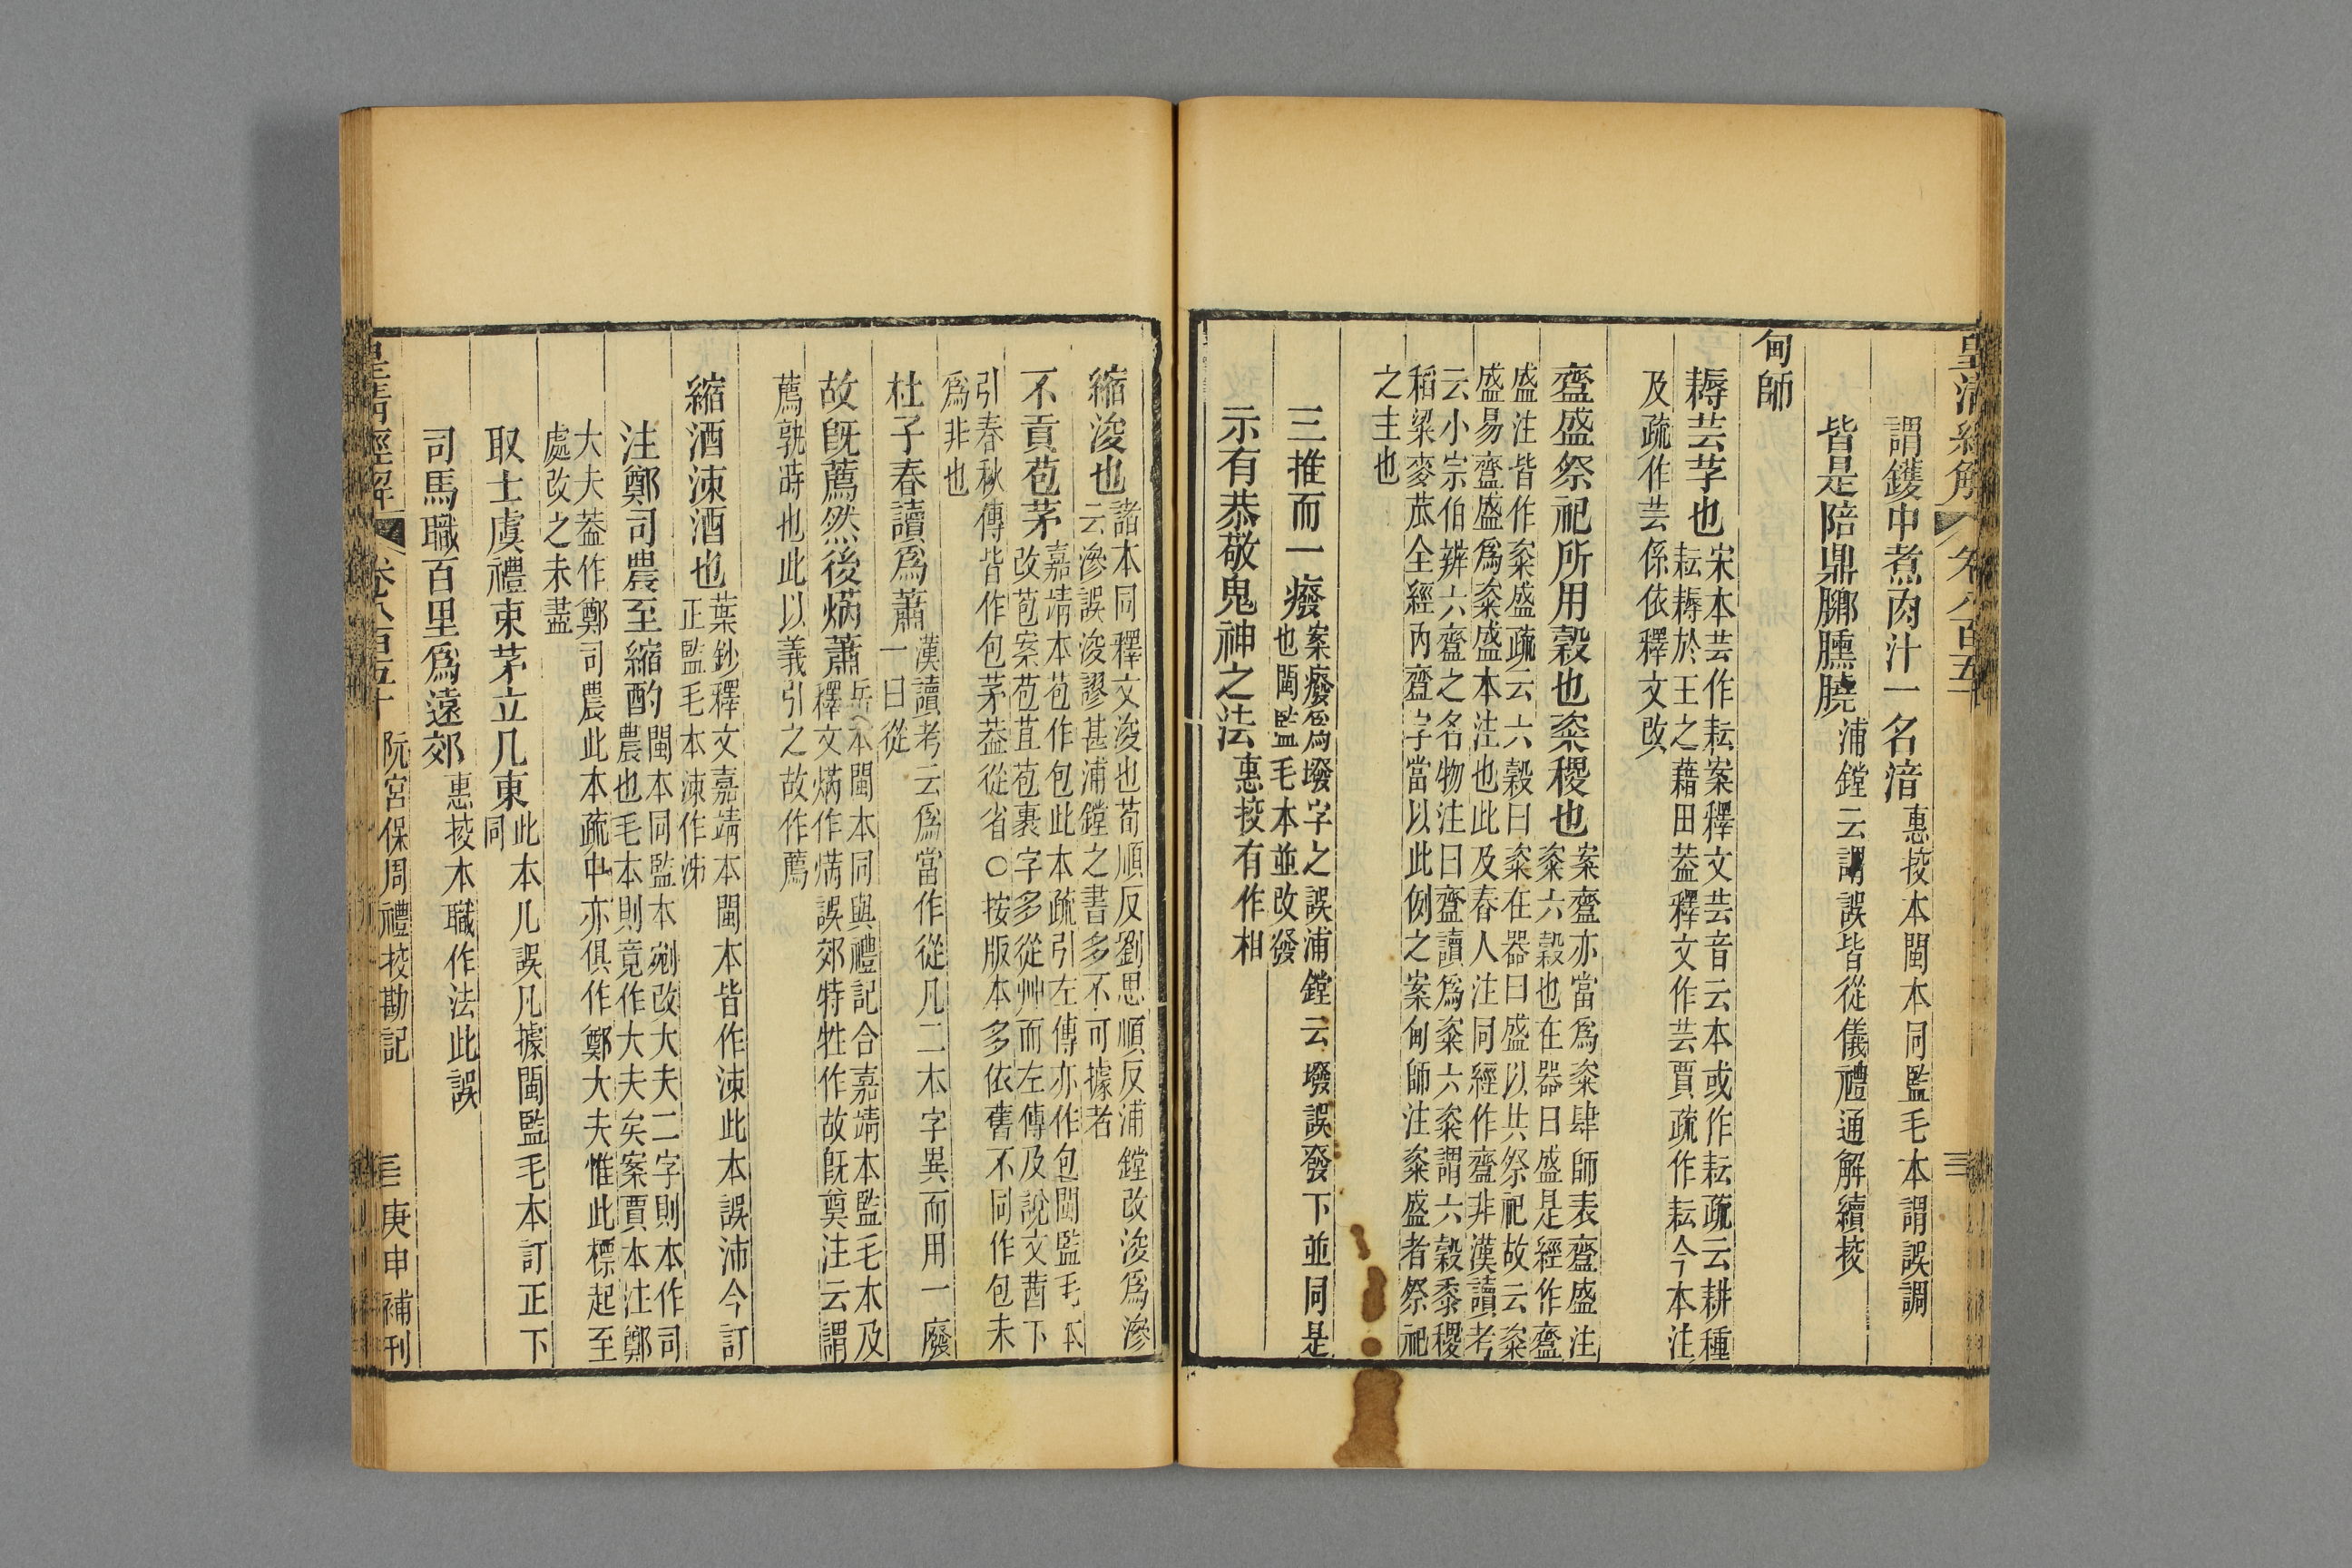 皇清經解 卷八百五十 三
謂鑊中煮肉汁一名湆惠挍本閩本同監毛本謂誤調
皆是陪鼎膷臐膮浦鏜云謂誤皆從儀禮通解續挍
甸師
耨芸芓也宋本芸作耘案釋文芸音云本或作耘疏云耕種
耘耨於王之藉田葢釋文作芸賈疏作耘今本注
及疏作芸係依釋文改
齍盛祭祀所用穀也粢稷也案齍亦當爲粢肆師表齍盛注
粢六穀也在器曰盛是經作齍
盛注皆作粢盛疏云六穀曰粢在器曰盛以共祭祀故云粢
盛易齍盛爲粢盛本注也此及舂人注同經作齍非漢讀考
云小宗伯辨六齍之名物注曰齍讀爲粢六粢謂六穀黍稷
稻粱麥苽全經內齍字當以此例之案甸師注粢盛者祭祀
之主也
三推而一癈案癈爲墢字之誤浦鏜云墢誤發下並同是
也閩監毛本並改發
示有恭敬鬼神之法惠挍有作相
縮浚也諸本同釋文浚也荀順反劉思順反浦鏜改浚爲滲
云滲誤浚謬甚浦鏜之書多不可據者
不貢苞茅嘉靖本苞作包此本疏引左傳亦作包閩監毛本
改苞案苞苴苞裹字多從艸而左傳及說文茜下
引春秋傳皆作包茅葢從省○按版本多依舊不同作包未
爲非也
杜子春讀爲蕭漢讀考云爲當作從凡二本字異而用一廢
一曰從
故旣薦然後焫蕭岳本閩本同與禮記合嘉靖本監毛本及
釋文焫作焫誤郊特牲作故旣奠注云謂
薦孰時也此以義引之故作薦
縮酒涑酒也葉鈔釋文嘉靖本閩本皆作涑此本誤沛今訂
正監毛本涑作泲
注鄭司農至縮酌閩本同監本剜改大夫二字則本作司
農也毛本則竟作大夫矣案賈本注鄭
大夫葢作鄭司農此本疏中亦俱作鄭大夫惟此標起至
處改之未盡
取士虞禮束茅立几東此本几誤凡據閩監毛本訂正下
同
司馬職百里爲遠郊惠挍本職作法此誤
皇清經解 卷八百五十 阮宮保周禮挍勘記 三 庚申補刊